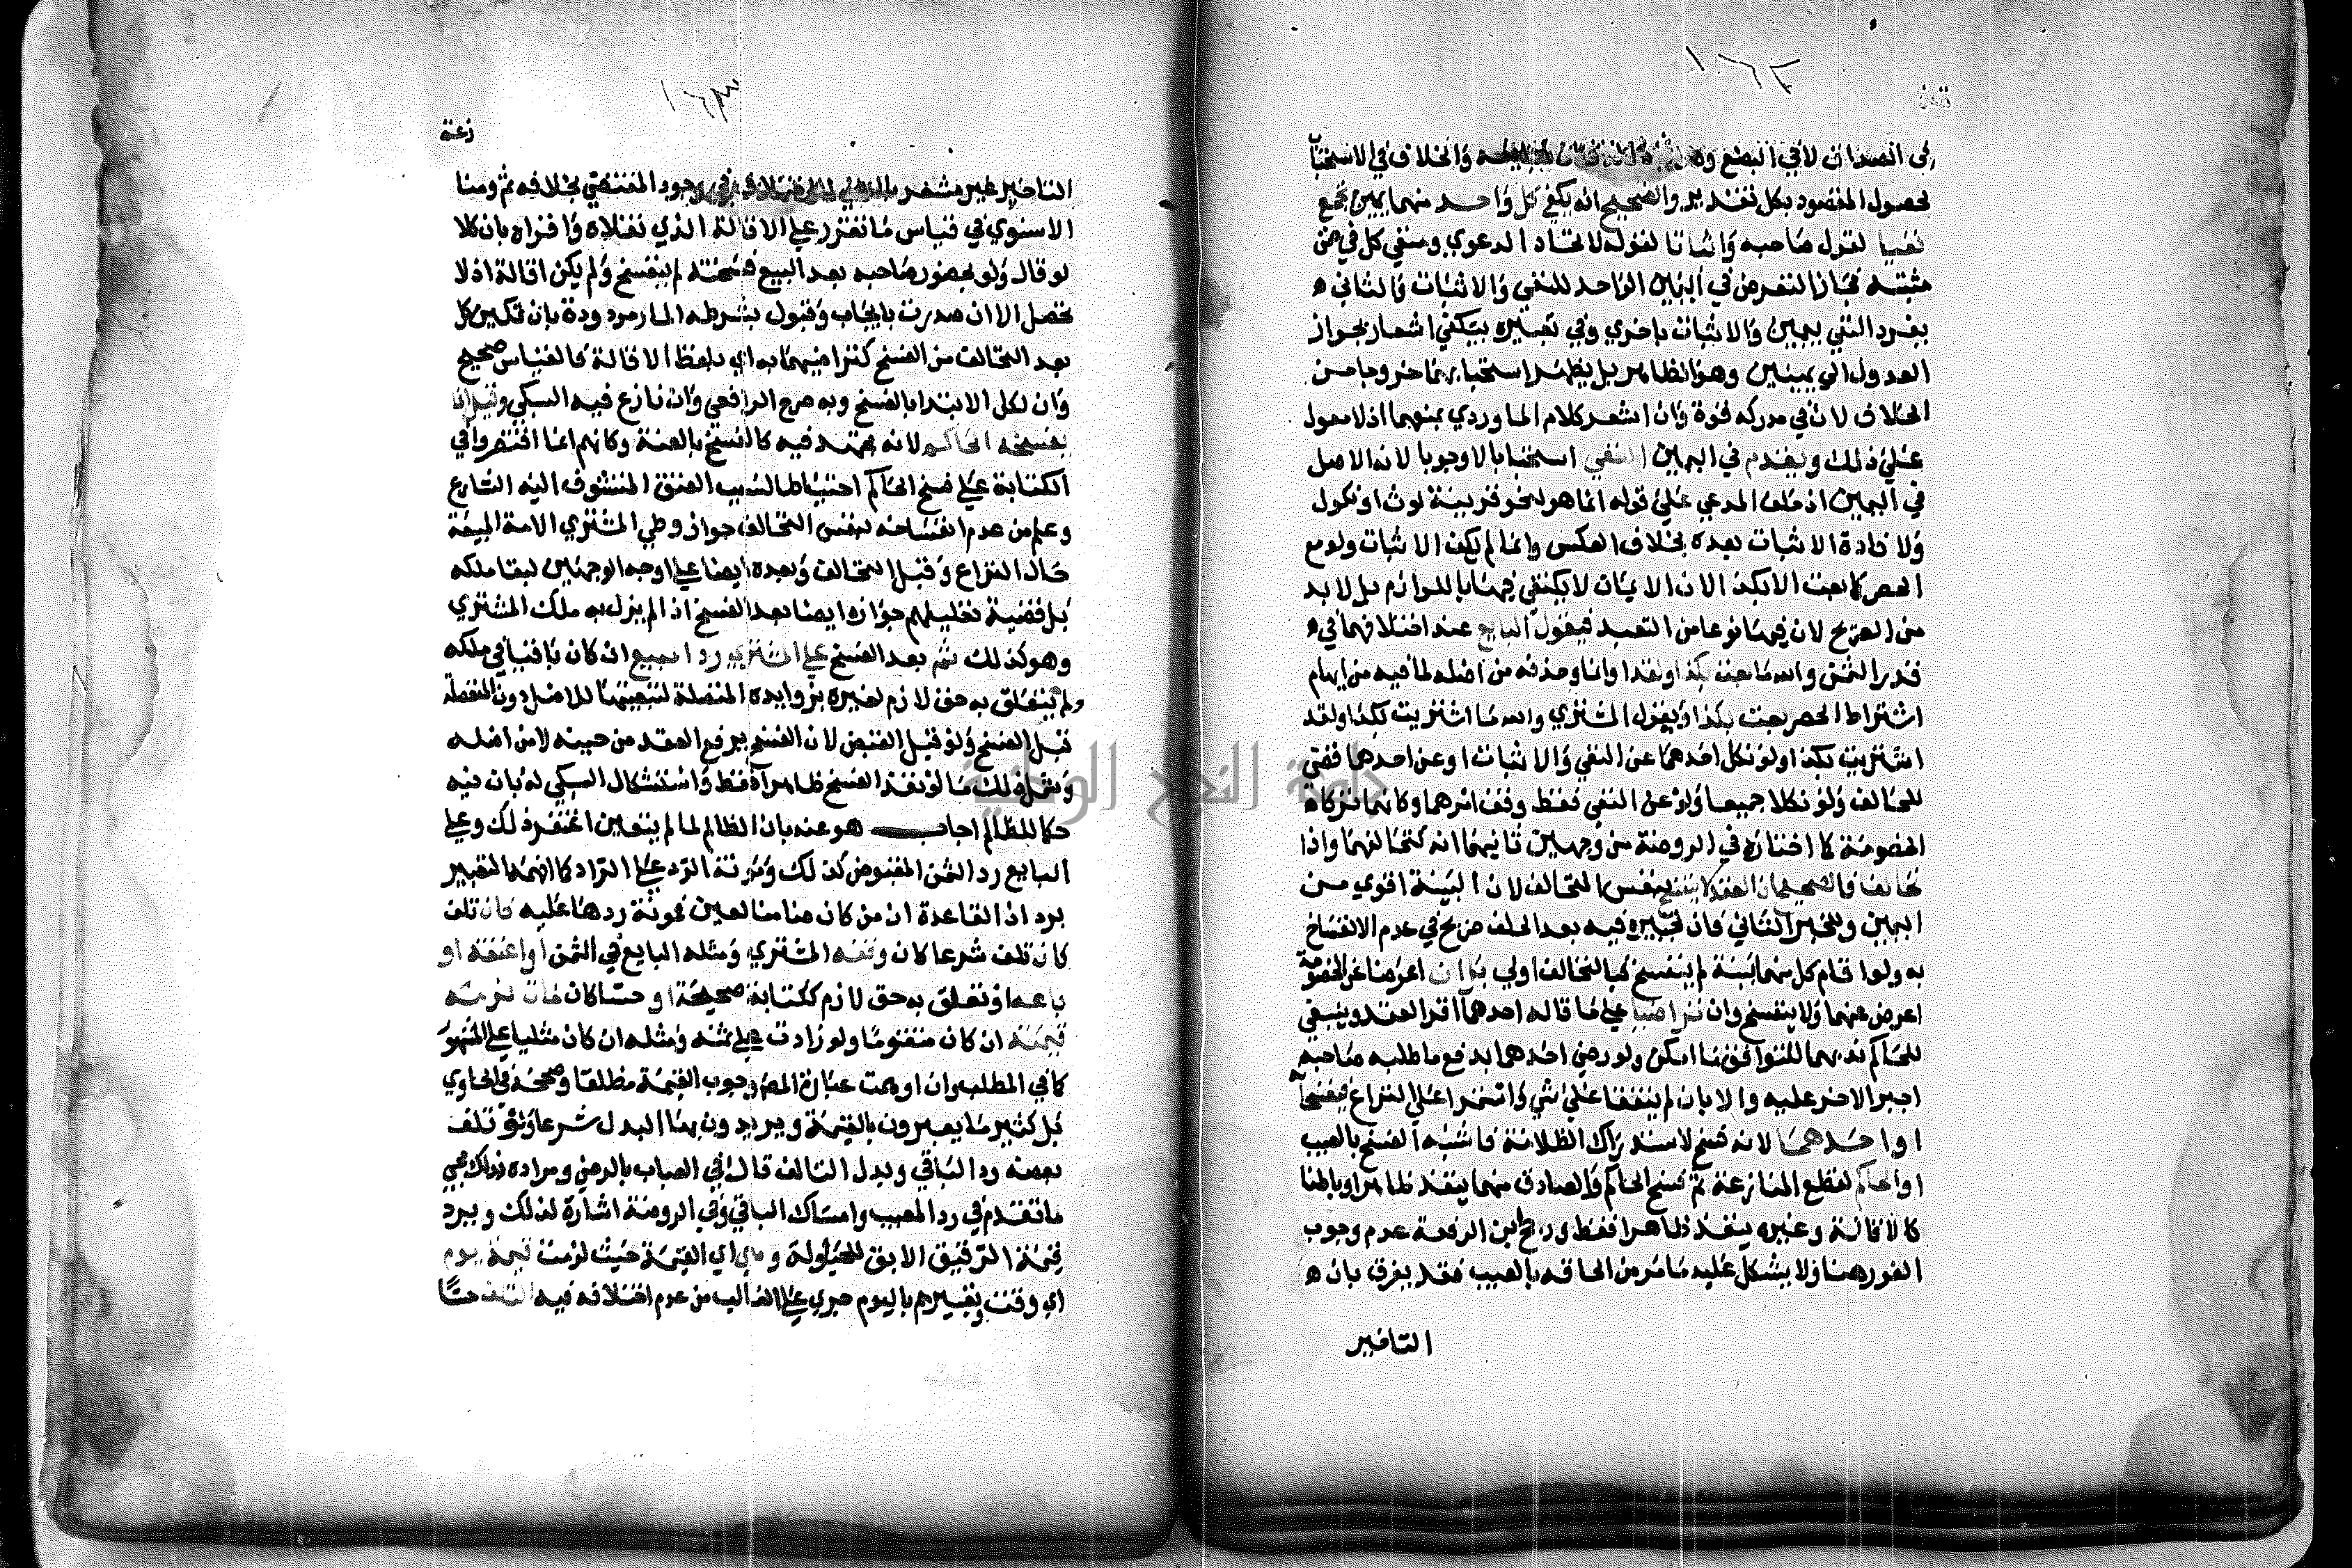 ١٦٢
في الصداق لا في البضع والخلاف في الاستحباب
لحصول المقصود بكل تقدير والصحيح انه يكفي كل واحد منهما يمين تجمع
نفيا لقول صاحبه واثباتا لقوله لاتحاد الدعوي ومنفي كل في ضمن
مثبته فجاز التعرض في اليمين الواحد للنفي والاثبات والثاني
يفرد النفي بيمين والاثبات باخري وفي تعبيره بيكفي اشعار بجواز
العدول الي يمينين وهو الظاهر بل يظهر استحبابهما خروجا من
الخلاف لان في مدركه قوة وان اشعر كلام الماوردي بمنعهما اذ لا معول
علي ذلك ويقدم في اليمين النفي استحبابا لا وجوبا لانه الاصل
في اليمين اذ حلف المدعي علي قوله انما هو لنحو قرينة لوث او نكول
ولافادة الاثبات بعده بخلاف العكس وانما لم يكف الاثبات ولو مع
الحصر كما بعت الا بكذا لان الايمان لا يكتفي فيها باللوازم بل لا بد
من الصريح لان فيها نوعا من التعبد فيقول البايع عند اختلافهما في
قدر الثمن والله ما بعت بكذا ولقد وانما وحذفه من اصله لما فيه من ايهام
اشتراط الحصر بعت بكذا ويقول المشتري والله ما اشتريت بكذا ولقد
اشتريت بكذا ولو نكل احدهما عن النفي والاثبات او عن احدهما قضي
للحالف ولو نكلا جميعا ولو عن النفي فقط وقف امرهما وكانهما تركاه
الخصومة كما اختاره في الروضة من وجهين ثانيهما انه كتحالفهما واذا
تحالفا فالصحيح ان العقد لا ينفسخ بنفس التحالف لان البينة اقوي من
اليمين وللخبر الثاني فان تخييره فيه بعد الحلف صريح في عدم الانفساخ
به ولو اقام كل منهما بينة لم ينفسخ فبالتحالف اولي بل ان اعرضا عن الخصومة
اعرض عنهما ولا ينفسخ وان تراضيا علي ما قاله احدهما اقر العقد وينبغي
للحاكم ندبهما للتوافق ما امكن ولو رضي احدهما بدفع ما طلبه صاحبه
اجبر الاخر عليه والا بان لم يتفقا علي شي واستمرا علي النزاع فيفسخانه
او احدهما لانه فسخ لاستدراك الظلامة فاشبه الفسخ بالعيب
او الحاكم لقطع المنازعة ثم فسخ الحاكم والصادق منهما ينفذ ظاهرا وباطنا
كالاقالة وغيره ينفذ ظاهرا فقط ورجح ابن الرفعة عدم وجوب
الفور هنا ولا يشكل عليه ما مر من الحاقه بالعيب فقد يفرق بان
التاخير
١٦٣
التاخير غير مشعر بالرضي للاختلاف في وجود المقتضي بخلافه ثم ومنا
الاسنوي في قياس ما تقرر علي الاقالة الذي نقلاه واقراه بان كلا
لو قال ولو بحضور صاحبه بعد البيع فسخته لم ينفسخ ولم يكن اقالة اذ لا
تحصل الا ان صدرت بايجاب وقبول بشرطه المار مردودة بان تمكين كل
بعد التحالف من الفسخ كتراضيهما به اي بلفظ الاقالة فالقياس صحيح
وان لكل الابتدا بالفسخ وبه صرح الرافعي وان نازع فيه السبكي وقيل انما
يفسخه الحاكم لانه مجتهد فيه كالفسخ بالعنة وكانهم انما اقتصروا في
الكتابة علي فسخ الحاكم احتياطا لسبب العتق المتشوف اليه الشارع
وعلم من عدم انفساخه بنفس التحالف جواز وطي المشتري الامة المبيعة
حال النزاع وقبل التحالف وبعده ايضا علي اوجه الوجهين لبقا ملكه
بل قضية تعليلهم جوازه ايضا بعد الفسخ اذ لم يزل به ملك المشتري
وهو كذلك ثم بعد الفسخ علي المشتري رد المبيع ان كان باقيا في ملكه
ولم يتعلق به حق لازم لغيره بزوايده المتصلة لتبعيتها للاصل دون المنفصلة
قبل الفسخ ولو قبل القبض لان الفسخ يرفع العقد من حينه لا من اصله
وشمل ذلك ما لو نفذ الفسخ ظاهرا فقط واستشكال السبكي له بان فيه
حكما للظالم اجاب هو عنه بان الظالم لما لم يتعين اغتفر ذلك وعلي
البايع رد الثمن المقبوض كذلك ومؤنة الرد علي الراد كما افهمه التعبير
برد اذ القاعدة ان من كان ضامنا لعين فمونة ردها عليه فان تلف
كان تلف شرعا كان وقفه المشتري ومثله البايع في الثمن او اعتقه او
باعه او تعلق به حق لازم ككتابة صحيحة او حسا كان مات لزمته
قيمته ان كان متقوما ولو زادت علي ثمنه ومثله ان كان مثليا علي المشهور
كما في المطلب وان اوهمت عبارة المص وجوب القيمة مطلقا وصححه في الحاوي
بل كثير ما يعبرون بالقيمة ويريدون بها البدل شرعا ولو تلف
بعضه رد الباقي وبدل التالف قال في العباب بالرضي ومراده بذلك مجي
ما تقدم في رد المعيب وامساك الباقي وفي الروضة اشارة لذلك ويرد
قيمة الرقيق الابق للحيلولة وهي اي القيمة حيث لزمت قيمة يوم
اي وقت وتعبيرهم باليوم جري علي الغالب من عدم اختلافه فيه التلف حسا